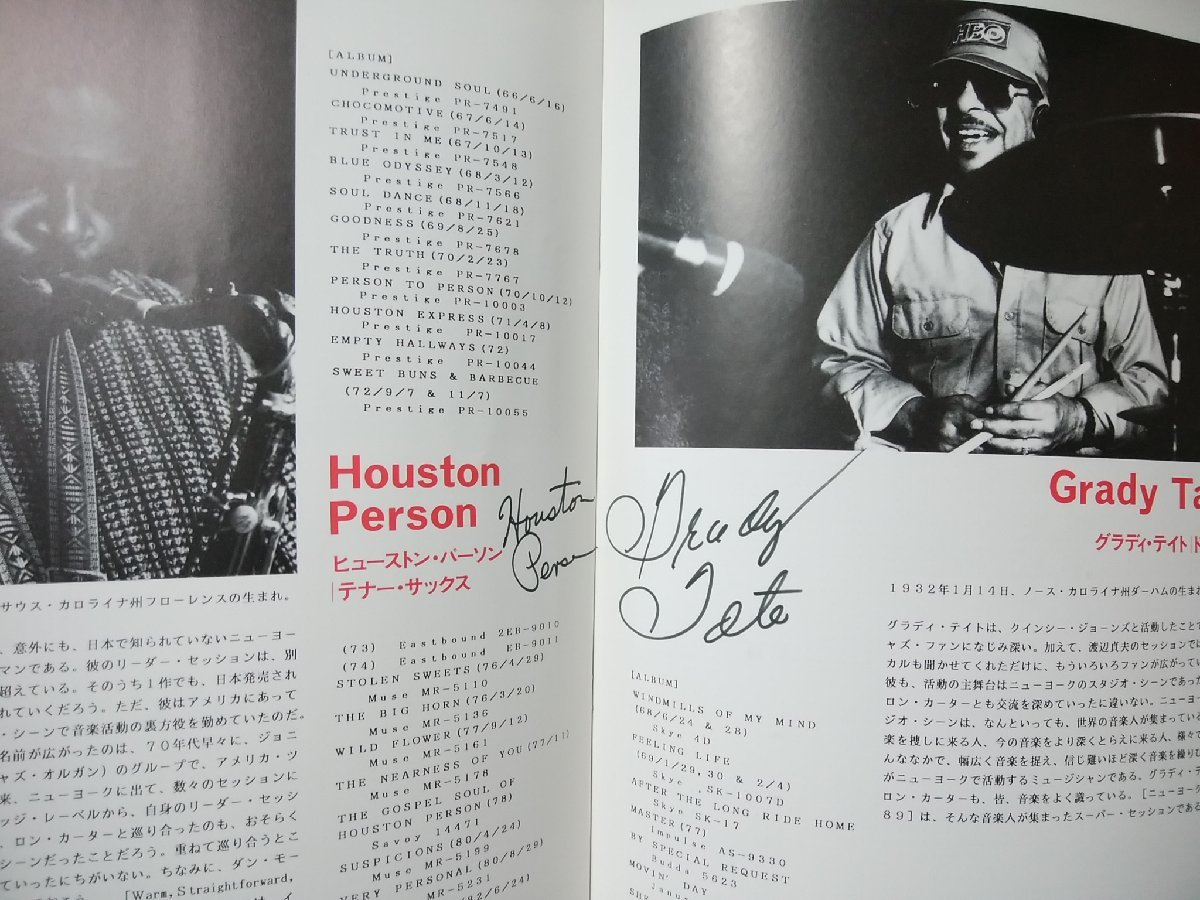 [ALBUM]
UNDERGROUND SOUL (66/6/16)
Prestige PR-7491
CHOCOMOTIVE (67/6/14)
Prestige PR-7517
TRUST IN ME (67/10/13)
Prestige PR-7548
BLUE ODYSSEY (68/3/12)
Prestige PR-7566
SOUL DANCE (68/11/18)
Prestige PR-7621
GOODNESS (69/8/25)
Prestige PR-7678
THE TRUTH (70/2/23)
Prestige PR-7767
PERSON TO PERSON (70/10/12)
Prestige PR-10003
HOUSTON EXPRESS (71/4/8)
Prestige PR-10017
EMPTY HALLWAYS (72)
Prestige PR-10044
SWEET BUNS & BARBECUE
(72/9/7 & 11/7)
Prestige PR-10055
Houston
Person
ヒューストン・パーソン
|テナー・サックス
Houston
Person
サウス・カロライナ州フローレンスの生まれ。
、意外にも、日本で知られていないニューヨー
マンである。彼のリーダー・セッションは、別
超えている。そのうち1作でも、日本発売され
れていくだろう。ただ、彼はアメリカにあって
・シーンで音楽活動の裏方役を勤めていたのだ。
名前が広がったのは、70年代早々に、ジョニ
ャズ・オルガン）のグループで、アメリカ・ツ
来、ニューヨークに出て、数々のセッションに
ッジ・レーベルから、自身のリーダー・セッシ
、ロン・カーターと巡り合ったのも、おそらく
シーンだったことだろう。重ねて巡り合うとこ
ていったにちがいない。ちなみに、ダン・モー
[Warm, Straightforward,
(73) Eastbound 2EB-9010
(74) Eastbound EB-9011
STOLEN SWEETS (76/4/29)
Muse MR-5110
THE BIG HORN (76/3/20)
Muse MR-5136
WILD FLOWER (77/9/12)
Muse MR-5161
THE NEARNESS OF YOU (77/11)
Muse MR-5178
THE GOSPEL SOUL OF
HOUSTON PERSON (78)
Savoy 14471
SUSPICIONS (80/4/24)
Muse MR-5199
VERY PERSONAL (80/8/29)
MR-5231
(82/6/24)
HBO
Grady Ta
グラディ・テイト|ド
Grady
Tate
[ALBUM]
WINDMILLS OF MY MIND
(68/6/24 & 28)
Skye 4D
FEELING LIFE
(69/1/29,30 & 2/4)
Skye SK-1007D
AFTER THE LONG RIDE HOME
Skye SK-17
MASTER (77)
Impulse AS-9330
BY SPECIAL REQUEST
Budda 5623
MOVIN' DAY
Janus
1932年1月14日、ノース・カロライナ州ダーハムの生まれ
グラディ・テイトは、クインシー・ジョーンズと活動したことで
ャズ・ファンになじみ深い。加えて、渡辺貞夫のセッションでは
カルも聞かせてくれただけに、もういろいろファンが広がってい
彼も、活動の主舞台はニューヨークのスタジオ・シーンであった
ロン・カーターとも交流を深めていったに違いない。ニューヨー
ジオ・シーンは、なんといっても、世界の音楽人が集まっている
楽を捜しに来る人、今の音楽をより深くとらえに来る人、様々で
んななかで、幅広く音楽を捉え、信じ難いほど深く音楽を繰りひ
がニューヨークで活動するミュージシャンである。グラディ・テ
ロン・カーターも、皆、音楽をよく識っている。[ニューヨーク
89］は、そんな音楽人が集まったスーパー・セッションである